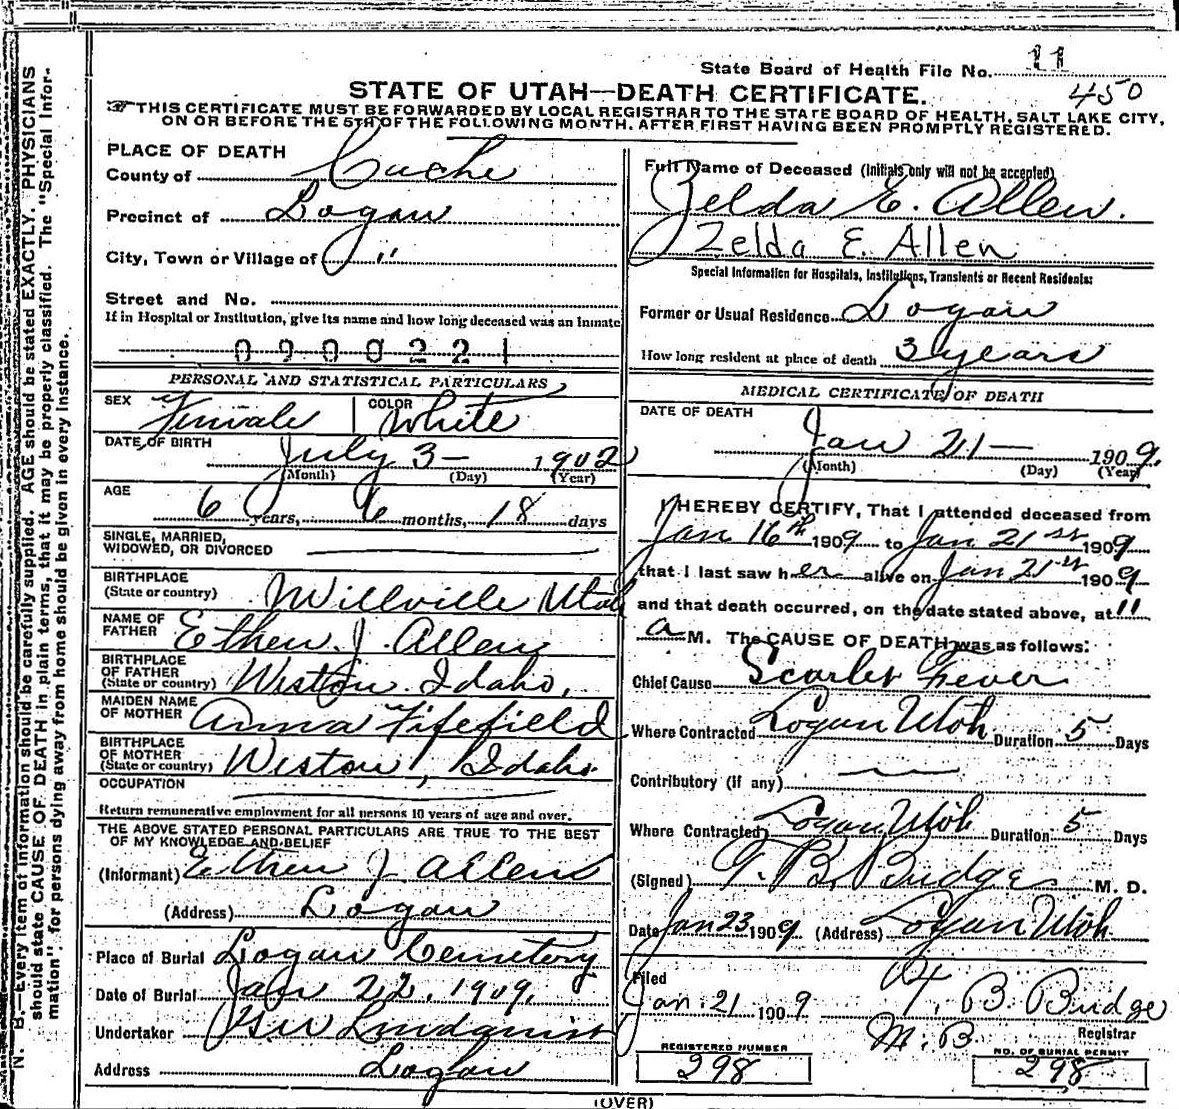 State Board of Health File No. 11
450
STATE OF UTAH—DEATH CERTIFICATE.
☞THIS CERTIFICATE MUST BE FORWARDED BY LOCAL REGISTRAR TO THE STATE BOARD OF HEALTH, SALT LAKE CITY,
ON OR BEFORE THE 5TH OF THE FOLLOWING MONTH, AFTER FIRST HAVING BEEN PROMPTLY REGISTERED.
PLACE OF DEATH
County of Cache
Precinct of Logan
City, Town or Village of "
Street and No.
If in Hospital or Institution, give its name and how long deceased was an inmate
0900221
PERSONAL AND STATISTICAL PARTICULARS
SEX Female COLOR White
DATE OF BIRTH
July 3- 1902
(Month) (Day) (Year)
AGE
6 years, 6 months, 18 days
SINGLE, MARRIED,
WIDOWED, OR DIVORCED
BIRTHPLACE
(State or country) Millville Utah
NAME OF
FATHER Ethen J. Allen
BIRTHPLACE
OF FATHER
(State or country) Weston Idaho,
MAIDEN NAME
OF MOTHER Anna Fifefield
BIRTHPLACE
OF MOTHER
(State or country) Weston, Idaho
OCCUPATION
Return remunerative employment for all persons 10 years of age and over.
THE ABOVE STATED PERSONAL PARTICULARS ARE TRUE TO THE BEST
OF MY KNOWLEDGE AND BELIEF
(Informant) Ethen J Allen
(Address) Logan
Place of Burial Logan Cemetery
Date of Burial Jan 22, 1909.
Undertaker Lindquist
Address Logan
Full Name of Deceased (Initials only will not be accepted)
Zelda E. Allen.
Zelda E. Allen
Special Information for Hospitals, Institutions, Transients or Recent Residents:
Former or Usual Residence Logan
How long resident at place of death 3 years
MEDICAL CERTIFICATE OF DEATH
DATE OF DEATH
Jan 21— 1909.
(Month) (Day) (Year)
I HEREBY CERTIFY, That I attended deceased from
Jan 16th 1909 to Jan 21st 1909
that I last saw her alive on Jan 21st 1909
and that death occurred, on the date stated above, at 11
a M. The CAUSE OF DEATH was as follows:
Chief Cause Scarlet Fever
Where Contracted Logan Utah Duration 5 Days
Contributory (if any)
Where Contracted Logan Utah Duration 5 Days
(Signed) T. B. Budge M. D.
Date Jan 23 1909 (Address) Logan Utah
Filed
Jan. 21 1909 T. B. Budge
M. B. Registrar
REGISTERED NUMBER
298
NO. OF BURIAL PERMIT
298
(OVER)
N. B.—Every item of information should be carefully supplied. AGE should be stated EXACTLY. PHYSICIANS
should state CAUSE OF DEATH in plain terms, that it may be properly classified. The "Special Infor-
mation" for persons dying away from home should be given in every instance.